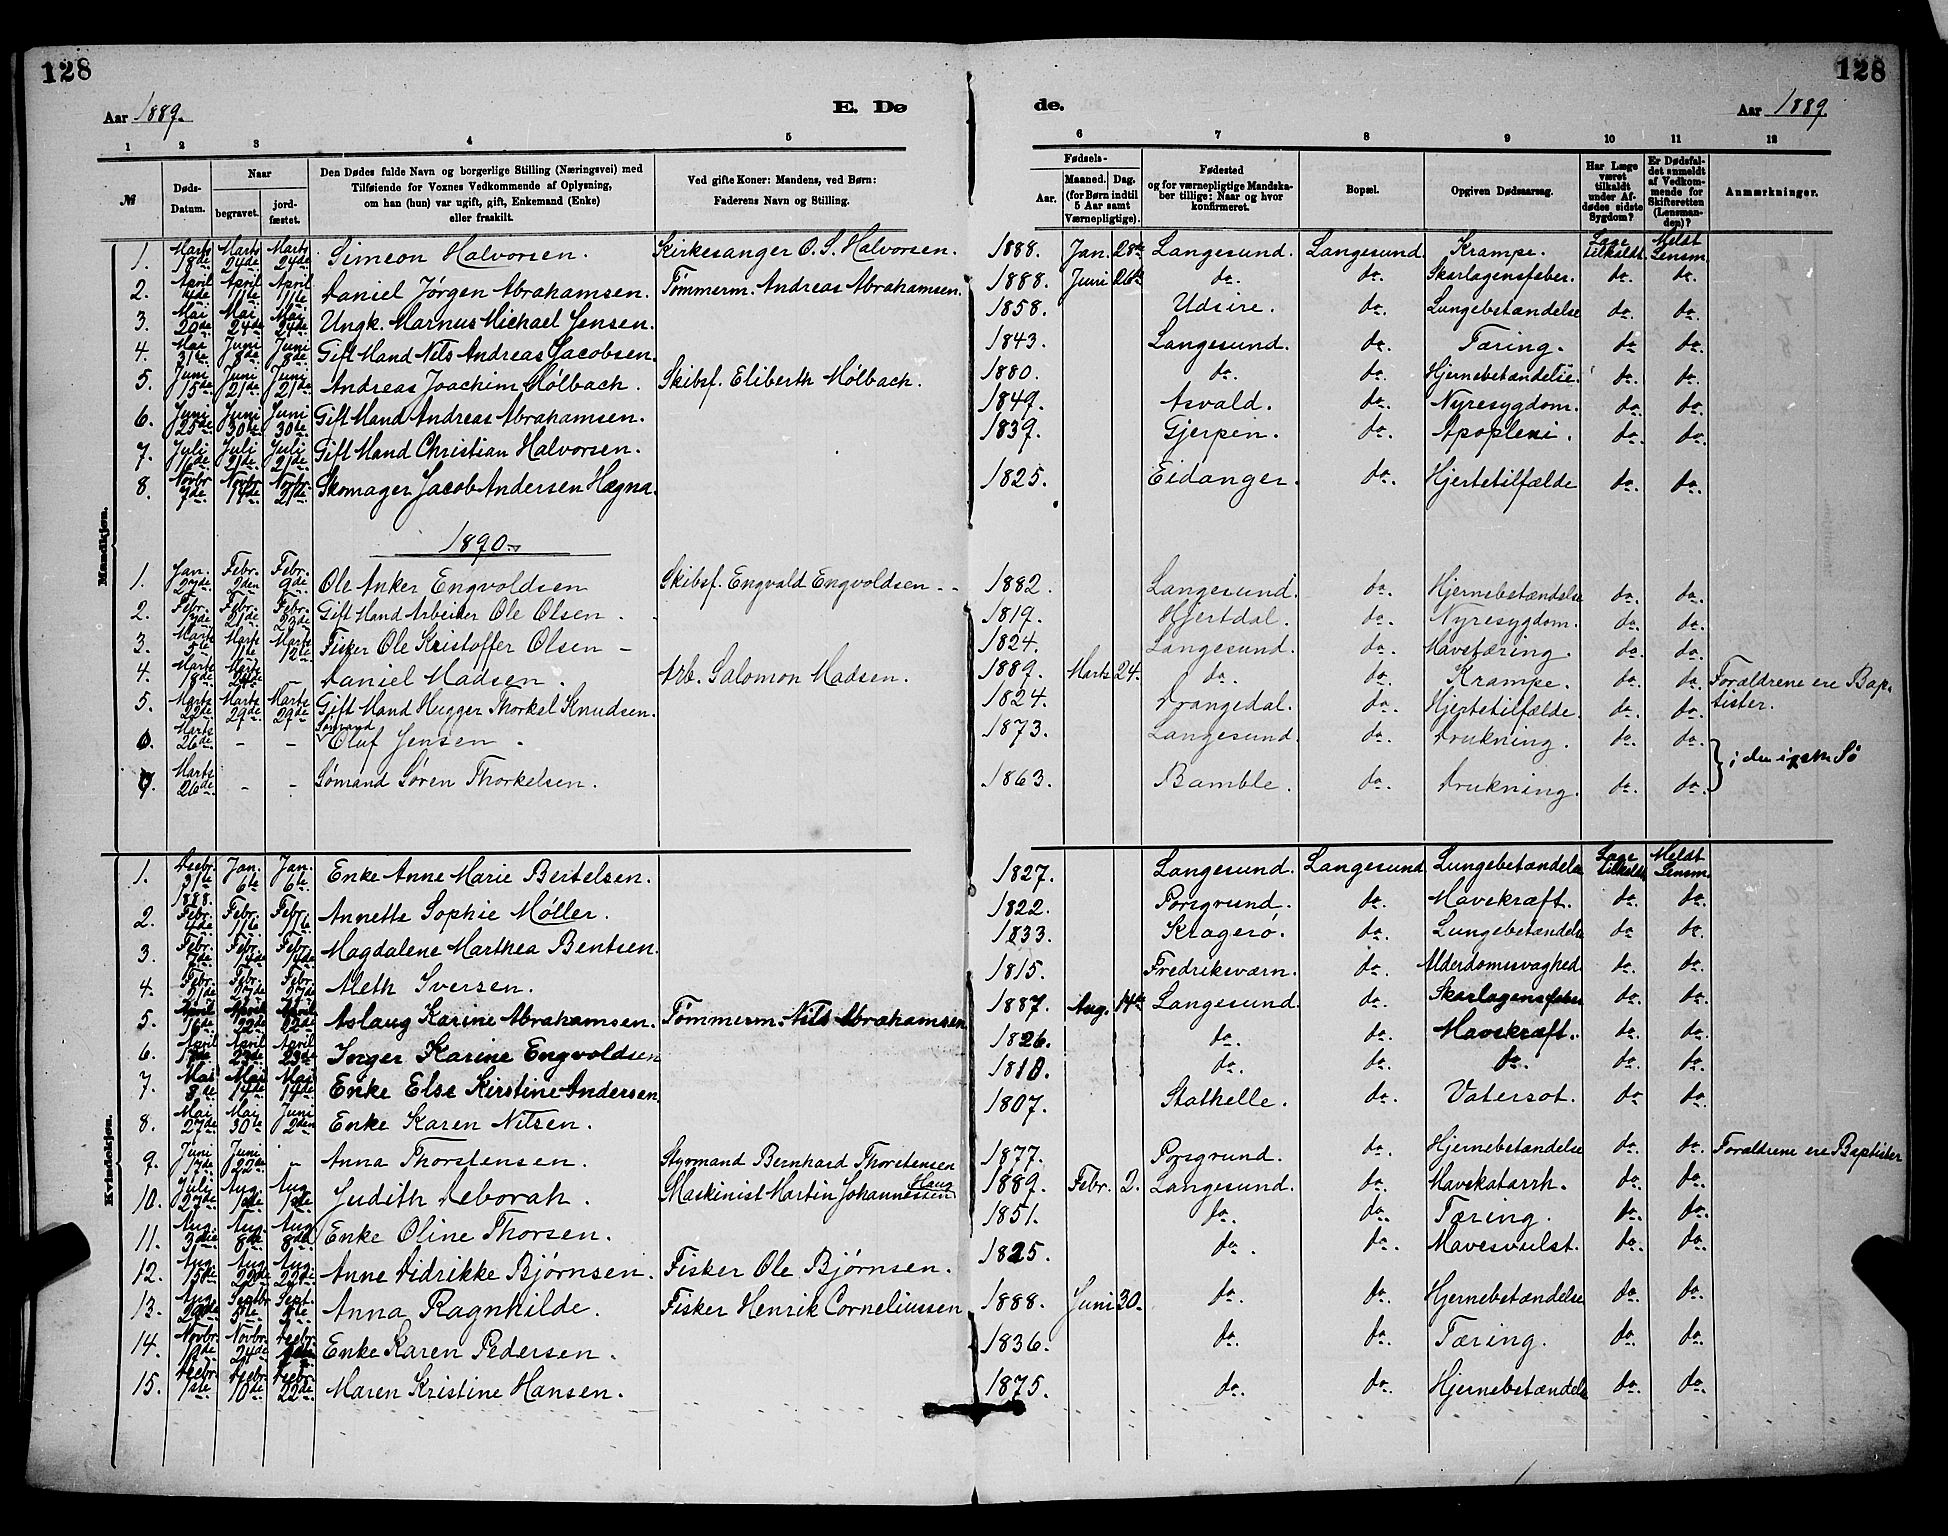 128
128
Aar 1889.
E. Dø
de.
Aar 1889.
1 2 3 4 5 6 7 8 9 10 11 12
№
Døds-Datum.
Naar
begravet.
jordfæstet.
Den Dødes fulde Navn og borgerlige Stilling (Næringsvei) med
Tilføiende for Voxnes Vedkommende af Oplysning,
om han (hun) var ugift, gift, Enkemand (Enke)
eller fraskilt.
Ved gifte Koner: Mandens, ved Børn:
Faderens Navn og Stilling.
Fødsels-
Aar.
Maaned. Dag.
(for Børn indtil
5 Aar samt
Værnepligtige).
Fødested
og for værnepligtige Mandska-
ber tillige: Naar og hvor
konfirmeret.
Bopæl.
Opgiven Dødsaarsag.
Har Læge
været
tilkaldt
under Af-
dødes sidste
Sygdom?
Er Dødsfal-
det anmeldt
af Vedkom-
mende for
Skifteretten
(Lensman-
den)?
Anmærkninger.
Mandkjøn.
1. Marts 18de Marts 24de Marts 24de Simeon Halvorsen. Kirkesanger O. S. Halvorsen. 1888. Jan. 28de Langesund. Langesund. Krampe. Læge tilkaldt. Meldt Lensm.
2. April 4de April 11te April 11te Daniel Jørgen Abrahamsen. Tømmerm. Andreas Abrahamsen. 1888. Juni 26de do. do. Skarlagensfeber. do. do.
3. Mai 20de Mai 24de Mai 24de Ungk. Marnus Michael Jensen. 1858. Udsire. do. Lungebetændelse do. do.
4. Mai 31te Juni 8de Juni 8de Gift Mand Nils Andreas Jacobsen. 1843. Langesund. do. Tæring. do do.
5. Juni 15de Juni 21de Juni 21de Andreas Joachim Mølbach. Skibsf. Eliberth Mølbach. 1880. do. do. Hjernebetændelse. do. do.
6. Juni 25de Juni 30te Juni 30te Gift Mand Andreas Abrahamsen. 1849. Asvald. do. Nyresygdom. do. do.
7. Juli 16de Juli 21de Juli 21de Gift Mand Christian Halvorsen. 1839. Gjerpen. do. Apoplexi. do. do.
8. Novbr. 7de Novbr. 17de Novbr. 21de Skomager Jacob Andersen Hægna. 1825. Eidanger. do. Hjertetilfælde do. do.
1890.
1. Jan. 27de Febr. 2den Febr. 9de Ole Anker Engvoldsen Skibsf. Engvald Engvoldsen - - 1882. Langesund. do. Hjernebetændelse do. do.
2. Febr. 17de Febr. 21de Febr. 23de Gift Mand Arbeider Ole Olsen. 1819. Hjertdal. do. Nyresygdom. do. do.
3. Marts 5te Marts 11te Marts 12te Fisker Ole Kristoffer Olsen - 1824. Langesund. do. Mavetæring. do. do.
4. Marts 18de Marts - Daniel Madsen. Arb. Salomon Madsen. 1889. Marts 24. do. do. Krampe. do. do. Forældrene ere Bap-
tister.
5. Marts 22de Marts 29de Marts 29de Gift Mand Hugger Thorkel Knudsen. 1824. Drangedal. do. Hjertetilfælde. do. do.
6. Marts 26de - - Sømand Oluf Jensen. 1873. Langesund. do. Drukning. do. do.
7. Marts 26de - - Sømand Søren Thorkelsen. 1863. Bamble. do. Drukning. do. do.
Kvindekjøn.
1. Decbr. 31te 1888. Jan. 6te Jan. 6te Enke Anne Marie Bertelsen. 1827. Langesund. Langesund Lungebetændelse Læge tilkaldt Meldt Lensm.
2. Febr. 4de Febr. 11te Febr. 11te Annette Sophie Møller. 1822. Porsgrund. do. Mavekræft. do. do.
3. Febr. 7de Febr. 14de Febr. 14de Magdalene Marthea Bentsen. 1833. Kragerø. do. Lungebetændelse do do.
4. Febr. 21de Febr. 27de Febr. 27de Aleth Iversen. 1815. Fredriksværn. do. Alderdomssvaghed do. do.
5. April 16de April 22de April 22de Aslaug Karine Abrahamsen. Tømmerm. Nils Abrahamsen 1887. Aug. 14de Langesund. do. Skarlagensfeber do. do.
6. April 17de April 23de April 23de Inger Karine Engvoldsen 1826. do. do. Mavekræft. do. do.
7. Mai 8de Mai 14de Mai 14de Enke Else Kirstine Andersen. 1810. do. do. do. do. do.
8. Mai 27de Mai 30te Juni 2den Enke Karen Nilsen. 1807. Stathelle. do. Vatersot. do do.
9. Juni 17de Juni 22de - Anna Thorstensen. Styrmand Bernhard Thorstensen 1877. Porsgrund. do. Hjernebetændelse do. do. Forældrene ere Baptister
10. Juli 27de Aug. 1ste Aug. 1ste Judith Deborah. Maskinist Martin Johannessen Haug 1889. Febr. 2. Langesund. do. Mavekatarrh. do. do.
11. Aug. 3die Aug. 8de Aug. 8de Enke Oline Thorsen. 1851. do. do. Tæring. do. do.
12. Aug. 15de Aug. 22de Aug. 22de Anne Didrikke Bjørnsen. Fisker Ole Bjørnsen. 1825. do. do. Mavesvulst. do. do.
13. Aug. Septbr. 5te Sept. 5te Anna Ragnhilde. Fisker Henrik Corneliussen 1888. Juni 30. do. do. Hjernebetændelse do. do.
14. Novbr. 19de Novbr. 24de Decbr. Enke Karen Pedersen. 1836. do. do. Tæring. do. do.
15. Decbr. 1ste Decbr. 10de Decbr. 22de Maren Kristine Hansen. 1875. do. do. Hjernebetændelse do. do.